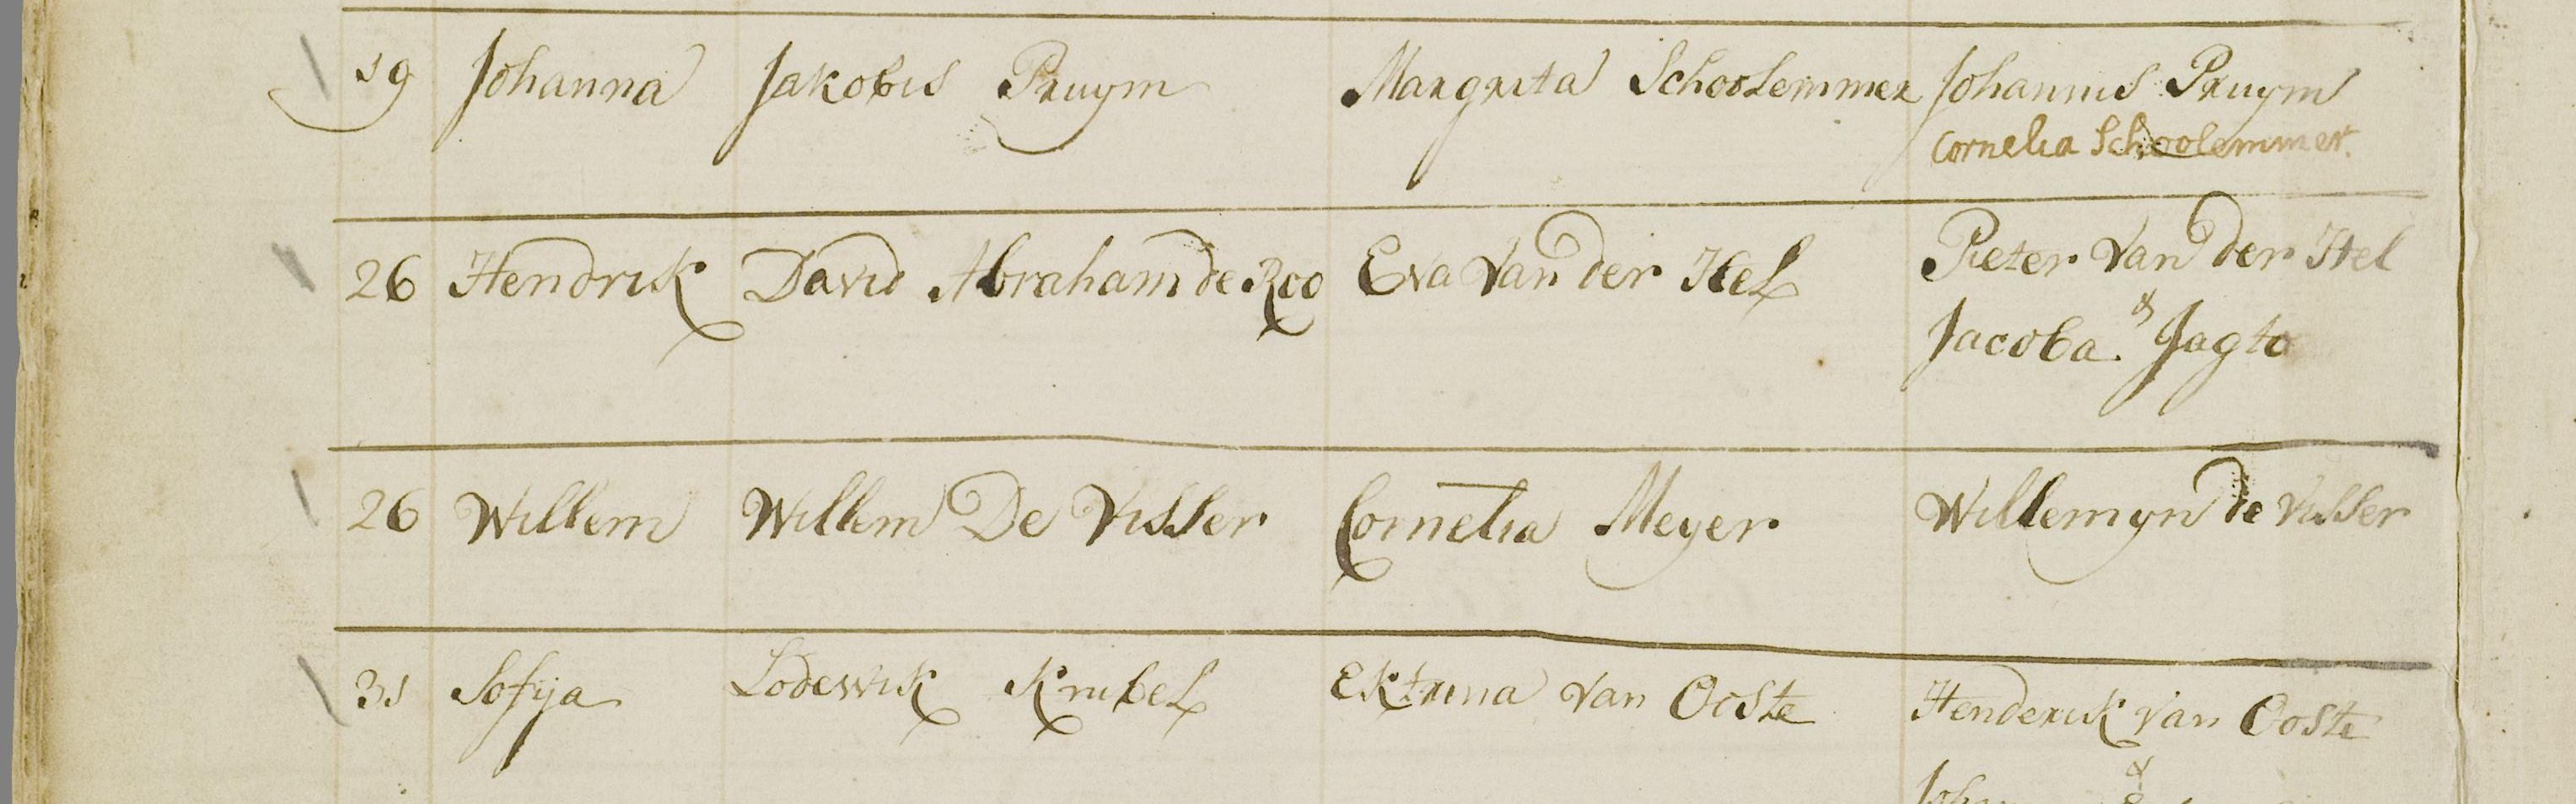 19 Johanna Jakobis Pruym Margrita Schoolemmer Johannis Pruym
Cornelia Schoolemmer.
26 Hendrik David Abraham de Roo Eva Van der Hel Pieter Van der Hel
&
Jacoba. Jagto
26 Willem Willem De Visser Cornelia Meyer Willemyn de Visser
31 Sofija Lodewik Knibel Ektrina van Ooste Henderik van Ooste
&